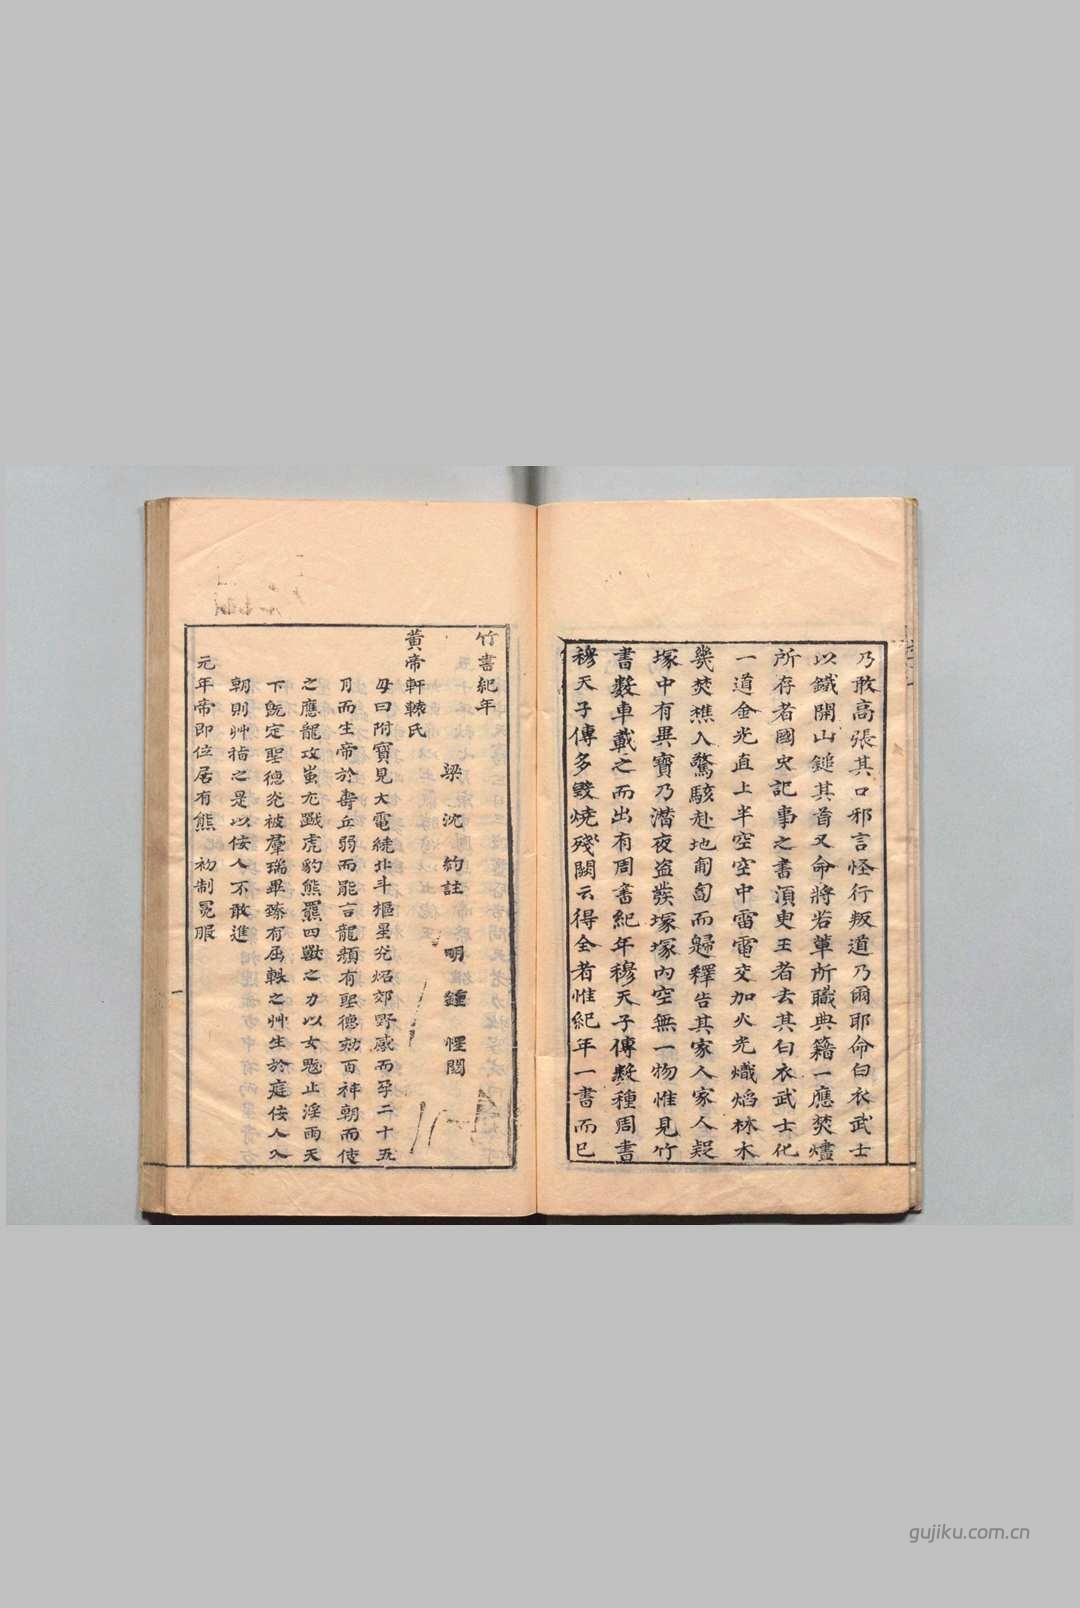 乃敢高張其口邪言怪行叛道乃爾耶命白衣武士
以鐵開山鎚其首又命將若輩所職典籍一應焚燼
所存者國史記事之書須臾王者去其白衣武士化
一道金光直上半空空中雷電交加火光熾焰林木
幾焚樵人驚駭赴地匍匐而歸釋告其家人家人疑
塚中有異寶乃潛夜盜發塚塚內空無一物惟見竹
書數車載之而出有周書紀年穆天子傳數種周書
穆天子傳多毀燒殘闕云得全者惟紀年一書而已
竹書紀年
梁 沈 約註 明 鍾 惺閱
黃帝軒轅氏
母曰附寶見大電繞北斗樞星光炤郊野感而孕二十五
月而生帝於壽丘弱而能言龍顏有聖德劾百神朝而使
之應龍攻蚩尤戰虎豹熊羆四獸之力以女魃止淫雨天
下既定聖德光被羣瑞畢臻有屈軼之艸生於庭佞人入
朝則艸指之是以佞人不敢進
元年帝即位居有熊 初制冕服
一
gujiku.com.cn